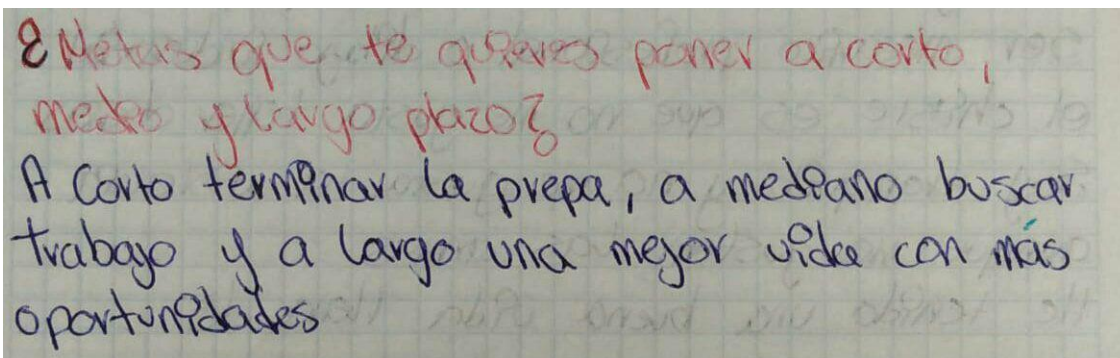 ¿Metas que te quieres poner a corto,
medio y largo plazo?
A corto terminar la prepa, a mediano buscar
trabajo y a largo una mejor vida con más
oportunidades